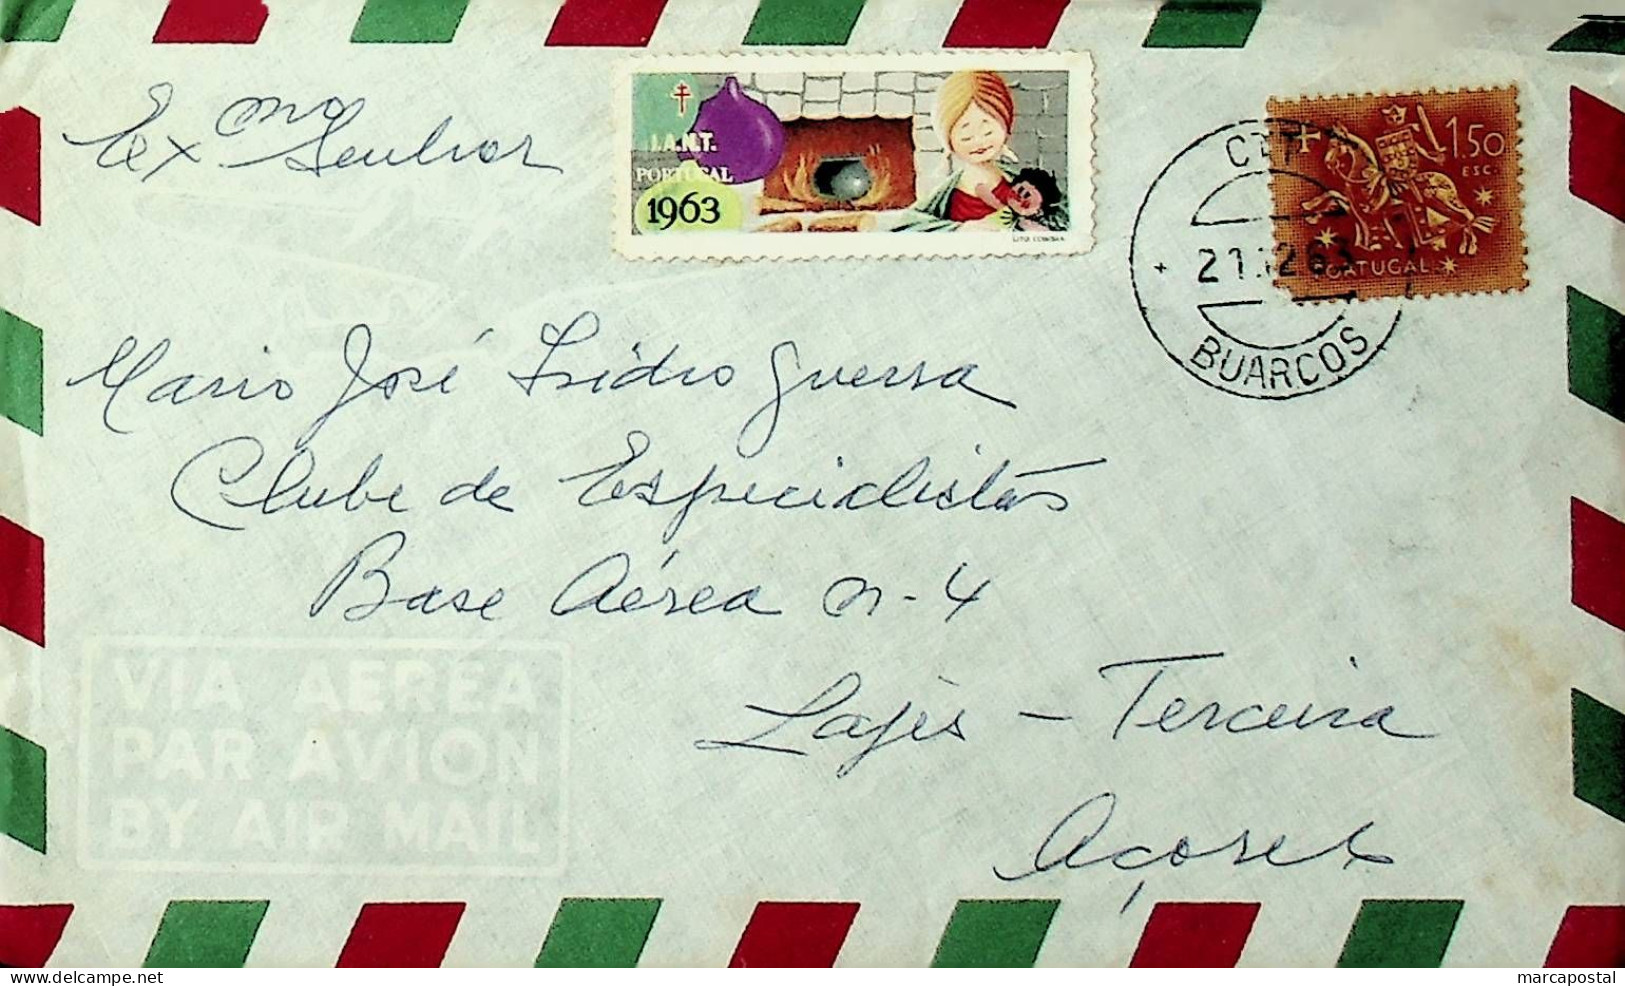 Ex mo Senhor
I.A.N.T.
PORTUGAL
1963
LITO COIMBRA
1$50
ESC.
PORTUGAL
CTT
21.12.63
BUARCOS
Mario José Isidro Guerra
Clube de Especialistas
Base Aérea n-4
Lajes - Terceira
Açores
VIA AEREA
PAR AVION
BY AIR MAIL
delcampe.net
marcapostal